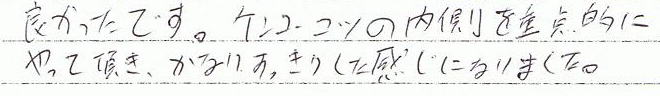 良かったです。ケンコーコツの内側を重点的に
やって頂き、かなりすっきりした感じになりました。